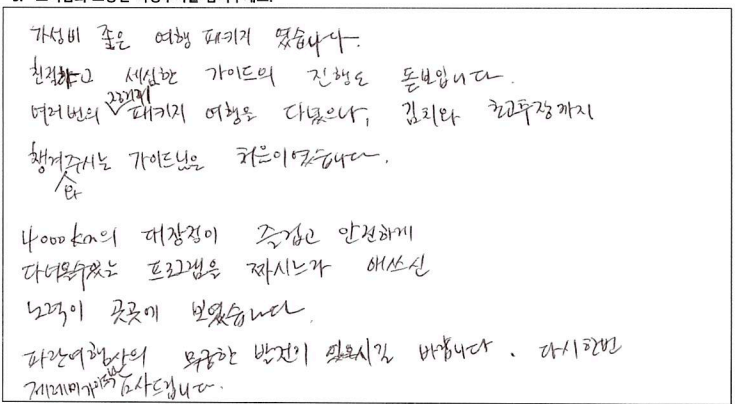 가성비 좋은 여행 패키지 였습니다.
친절하고 세심한 가이드의 진행도 돋보입니다.
여러번의 패키지 여행을 다녔으나, 김치와 고추장까지
챙겨와주시는 가이드님은 처음이였습니다.
4000km의 대장정이 즐겁고 안전하게
다녀올수있는 프로그램을 짜시느라 애쓰신
노력이 곳곳에 보였습니다.
파란여행사의 무궁한 발전이 있으시길 바랍니다. 다시한번
제레미가이드님 감사드립니다.